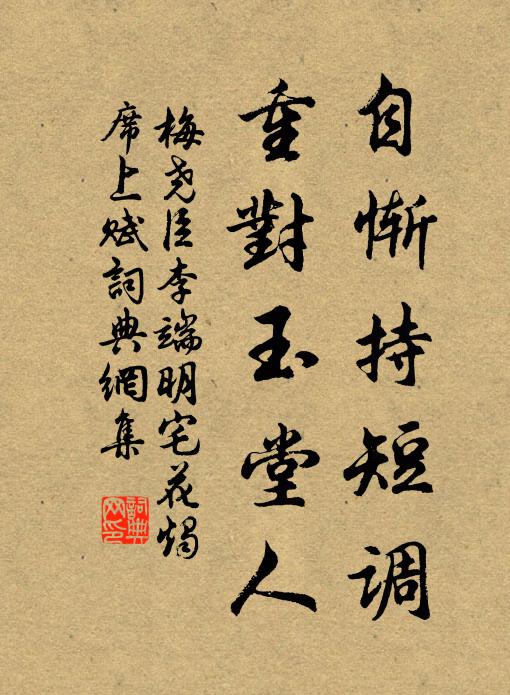 自惭持短调
重對玉堂人
梅尧臣李端明宅花燭
席上赋詞典網集
詞典网印